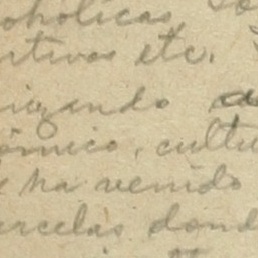 oholicas
rtivos etc.
izando
ómico, cultu
ha venido
rcelas dond